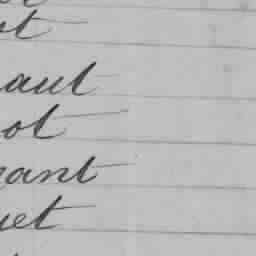 t
aut
ot
rant
uet